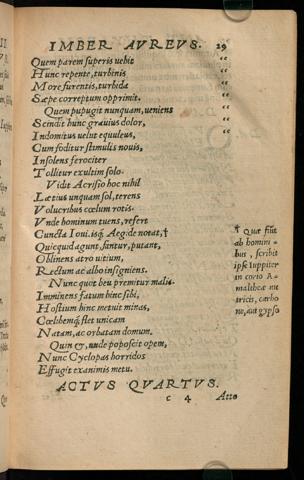 IMBER AVREVS. 29
Quem parem superis vehit “
Hunc repente, turbinis “
More furentis, turbida “
Sæpe correptum opprimit. “
Quem pupugit nunquam, veniens “
Scindit hunc grauius dolor, “
Indomitus velut equuleus, “
Cum foditur stimulis nouis,
Insolens ferociter
Tollitur exultim solo.
Vidit Acrisio hoc nihil
Lætius unquam sol, terens
Volucribus cœlum rotis.
Vnde hominum tuens, refert
Cuncta Ioui. isq́; Aegide notat,†
Quicquid agunt, fantur, putant,
Oblinens atro uitium,
Rectum ac albo insigniens.
Nunc quot heu premitur malis.
Imminens fatum hinc sibi,
Hostium hinc metuit minas,
Cœlibemq́; flet unicam
Natam, ac orbatam domum.
Quin &, unde poposcit opem,
Nunc Cyclopas horridos
Effugit exanimis metu.
† Quæ fiūt
ab homini
bus, scribit
ipse Iuppiter
in corio A-
malthææ nu
tricis, carbo
ne, aut gypso
ACTVS QVARTVS.
c 4 Atto